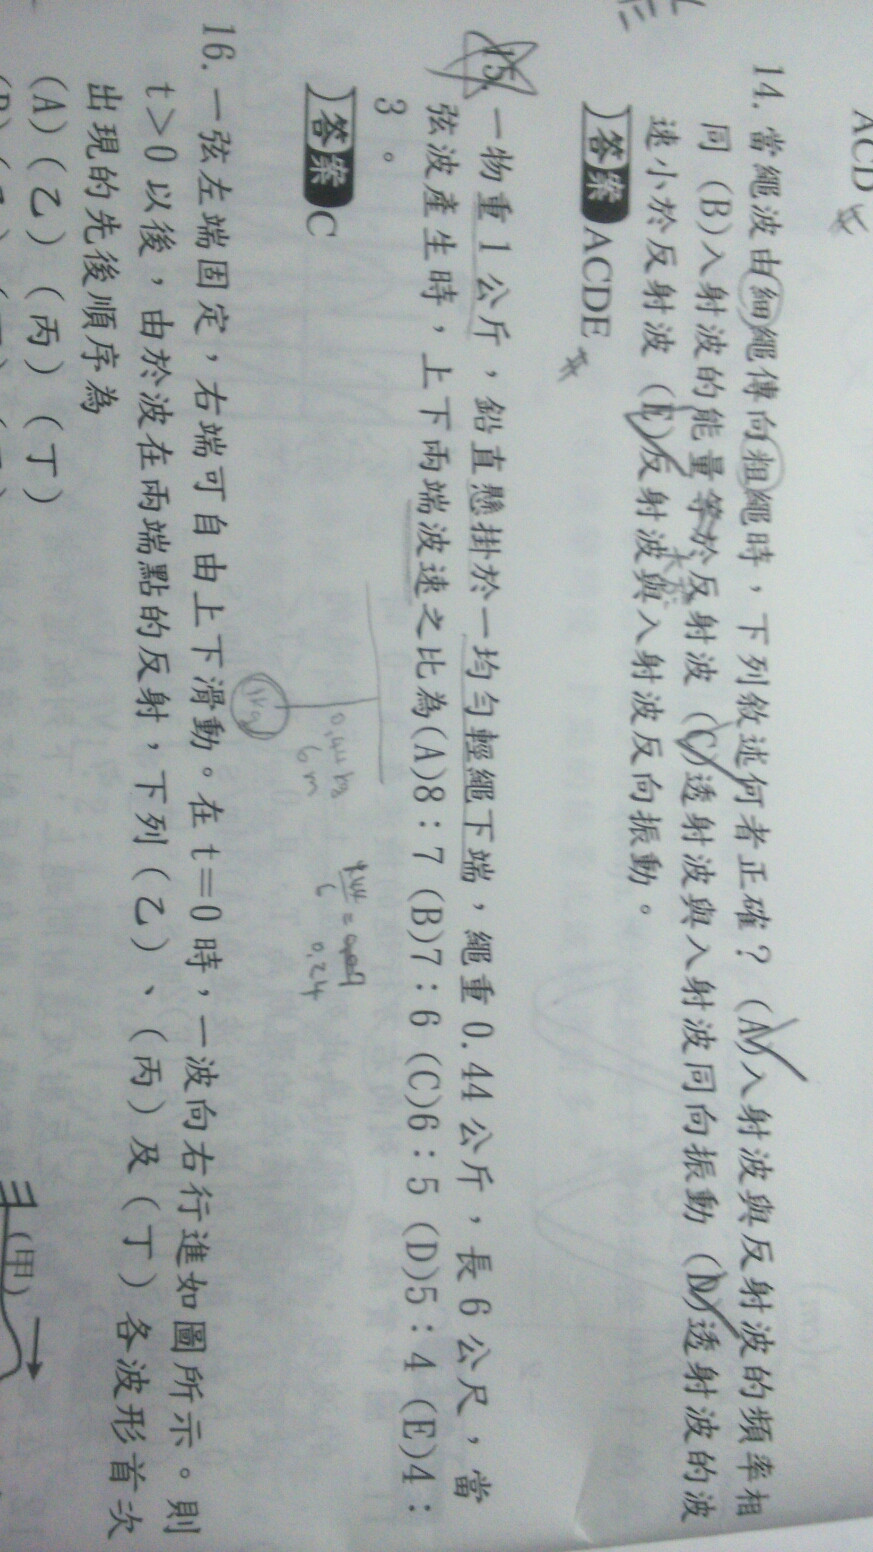 ACD
14. 當繩波由細繩傳向粗繩時，下列敘述何者正確？(A)入射波與反射波的頻率相
同 (B)入射波的能量等於反射波 (C)透射波與入射波同向振動 (D)透射波的波
速小於反射波 (E)反射波與入射波反向振動。
答案 ACDE
15. 一物重1公斤，鉛直懸掛於一均勻輕繩下端，繩重0.44公斤，長6公尺，當
弦波產生時，上下兩端波速之比為(A)8：7 (B)7：6 (C)6：5 (D)5：4 (E)4：
3。
答案 C
1kg
0.44kg
6m
0.24
16. 一弦左端固定，右端可自由上下滑動。在t＝0時，一波向右行進如圖所示。則
t＞0以後，由於波在兩端點的反射，下列（乙）、（丙）及（丁）各波形首次
出現的先後順序為
(甲)
(A)（乙）（丙）（丁）